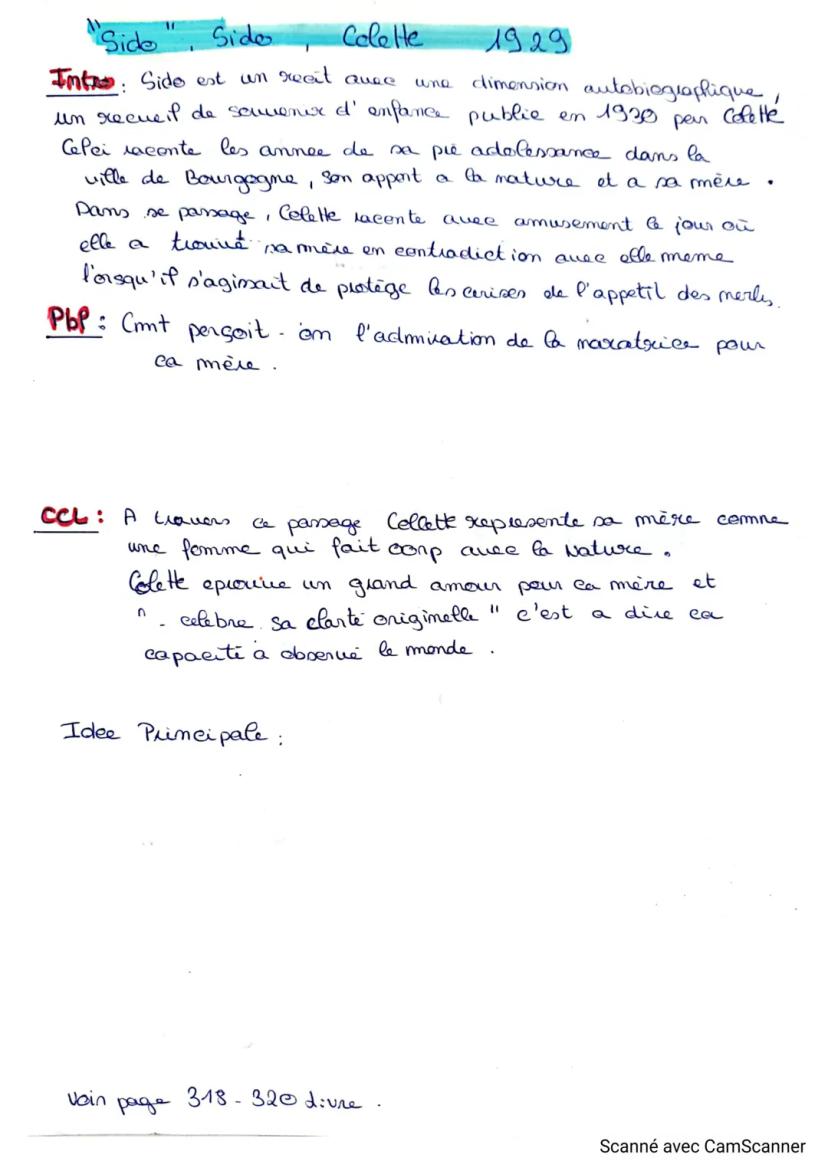 "Sido", Sido, Colette 1929
Intro : Sido est un recit avec une dimension autobiographique,
un recueil de souvenir d'enfance publie en 1930 par Colette
Celei raconte les annee de sa pré adolessance dans la
ville de Bourgogne, son apport a la nature et a sa mère.
Dans se passage, Colette raconte avec amusement le jour où
elle a trouvé sa mère en contradiction avec elle meme
l'orsqu'il s'agissait de protège les cerises de l'appetil des merles.
Pbl : Cmt perçoit-on l'admiration de la naratrice pour
ca mère.
CCL : A travers ce passage Colette represente sa mère comme
une femme qui fait corp avec la Nature.
Colette eprouve un grand amour pour ca mère et
" - celebre sa clarté originelle" c'est a dire ca
capacité a observé le monde.
Idee Principale :
Voir page 318 - 320 livre.
Scanné avec CamScanner